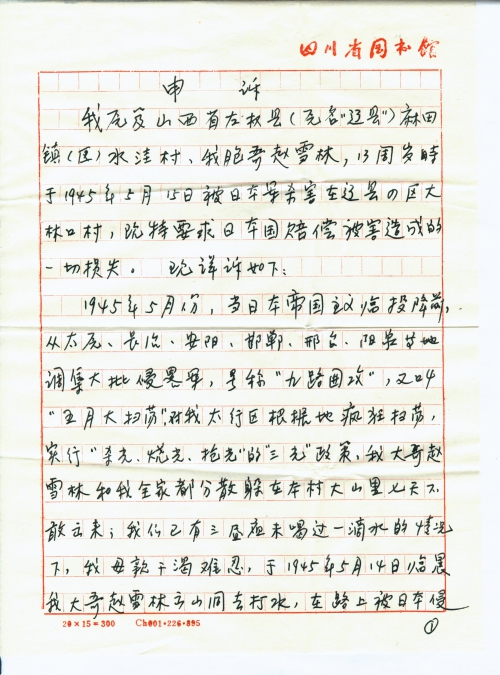 四川省图书馆
申 诉
我原系山西省左权县(元名“辽县”)麻田
镇(区)水洼村、我胞哥赵雪林,13周岁时
于1945年5月15日被日本军杀害在辽县の区大
林口村,现特要求日本国赔偿被害造成的
一切损失。 现详诉如下:
1945年5月份,当日本帝国主义临投降前,
从太原、长治、安阳、邯郸、邢台、阳泉等地
调集大批侵略军,号称“九路围攻”,又叫
“五月大扫荡”,对我太行区根据地疯狂扫荡,
实行“杀光、烧光、抢光”的“三光”政策,我大哥赵
雪林和我全家都分散躲在本村大山里七天不
敢出来;我们已有三昼夜未喝过一滴水的情况
下,我母亲干渴难忍,于1945年5月14日临晨
我大哥赵雪林出山洞去打水,在路上被日本侵
20×15=300 Ch001·226·895
①